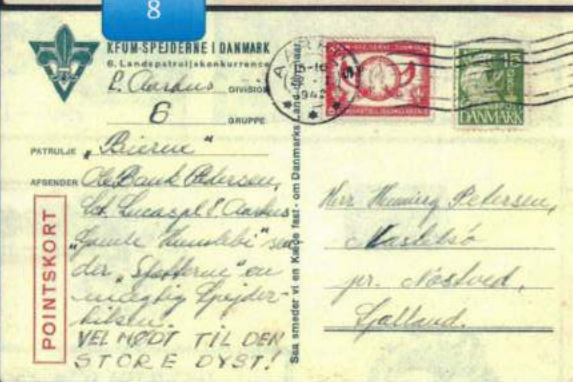 8
KFUM-SPEJDERNE I DANMARK
6. Landspatruljekonkurrence
2. Aarhus DIVISION
6 GRUPPE
PATRULJE „Bierne“
AFSENDER Ole Bank Petersen,
Sct. Lucaspl 8 Aarhus
„Gamle Humlebi“ sen
der „Spætterne“ en
mægtig Spejder-
hilsen.
VEL MØDT TIL DEN
STORE DYST!
POINTSKORT
Saa smeder vi en Kæde fast - om Danmarks Land
AARHUS
1942
15
DANMARK
Herr Henning Petersen,
pr. Næstved,
Sjælland.